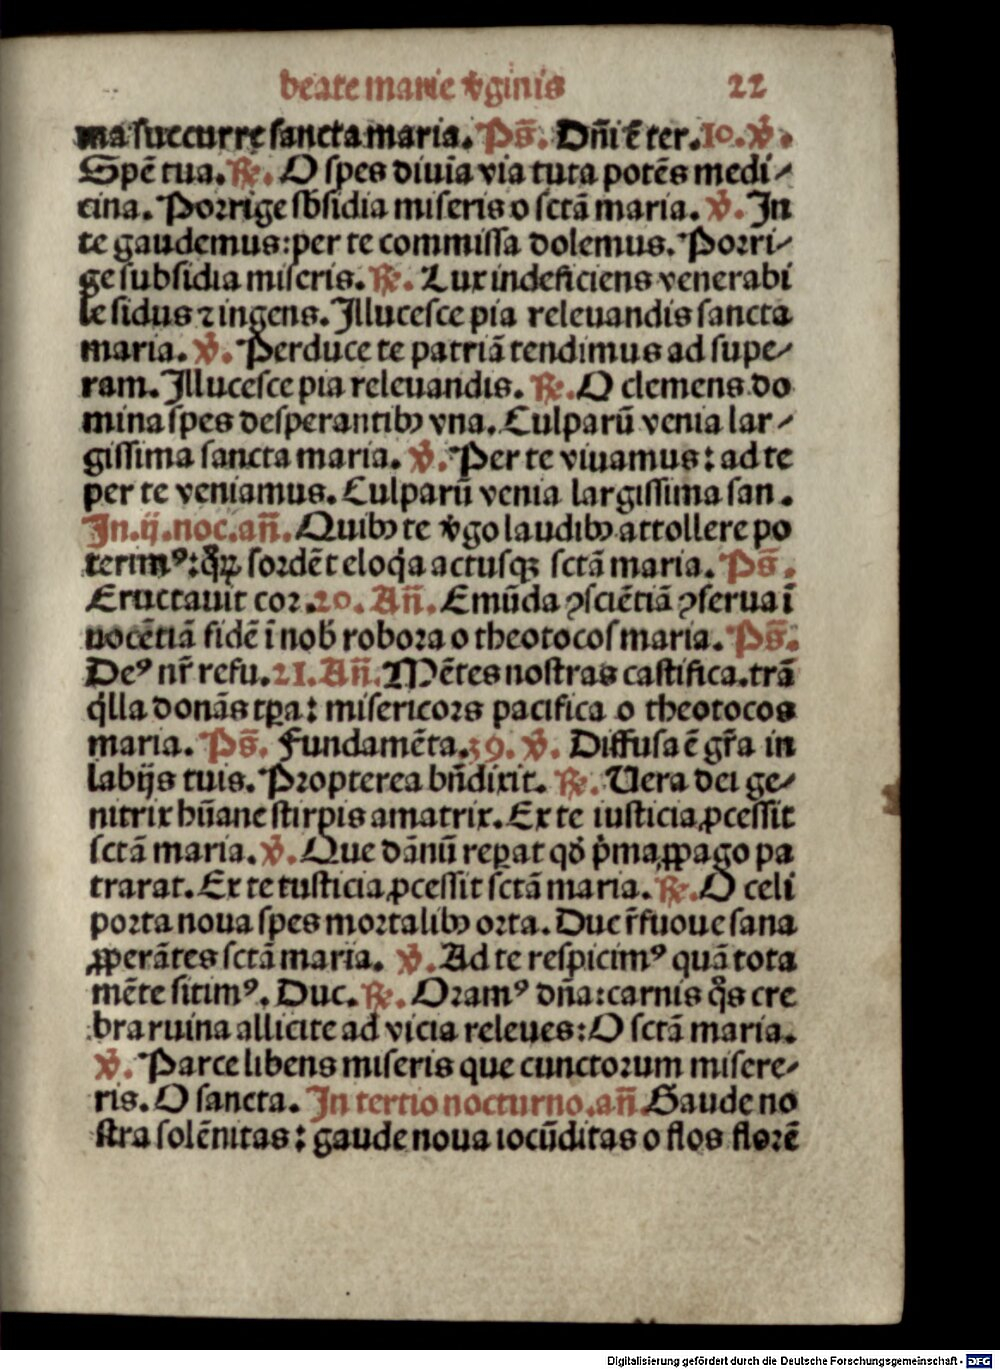 beate marie v̄ginis 22
ma succurre sancta maria. Ps̄. Dn̄i ē ter. 10. V̄.
Spē tua. R̄. O spes diuīa via tuta potēs medi⸗
cina. Porrige sb̄sidia miseris o sctā maria. V̄. In
te gaudemus: per te commissa dolemus. Porri⸗
ge subsidia miseris. R̄. Lux indeficiens venerabi
le sidus ⁊ ingens. Illucesce pia releuandis sancta
maria. V̄. Perduce te patriā tendimus ad supe⸗
ram. Illucesce pia releuandis. R̄. O clemens do
mina spes desperantibꝰ vna. Culparū venia lar⸗
gissima sancta maria. V̄. Per te viuamus: ad te
per te veniamus. Culparū venia largissima san.
In. ij. noc. an̄. Quibꝰ te v̄go laudibꝰ attollere po
terimꝰ: qꝝ sordēt eloq̇a actusqꝫ sctā maria. Ps̄.
Eructauit cor. 20. An̄. Emūda ꝯsciētiā ꝯserua ī
nocētiā fidē ī nob̄ robora o theotocos maria. Ps̄.
Deꝰ nr̄ refu. 21. An̄. Mētes nostras castifica. trā
q̇lla donās tꝑa: misericors pacifica o theotocos
maria. Ps̄. Fundamēta. 39. V̄. Diffusa ē gr̄a in
labijs tuis. Propterea bn̄dixit. R̄. Uera dei ge⸗
nitrix hūane stirpis amatrix. Ex te iusticia ꝓcessit
sctā maria. V̄. Que dānū reꝑat qđ p̄ma ꝓpago pa
trarat. Ex te iusticia ꝓcessit sctā maria. R̄. O celi
porta noua spes mortalibꝰ orta. Duc r̄fuoue sana
ꝓperātes sctā maria. V̄. Ad te respicimꝰ quā tota
mēte sitimꝰ. Duc. R̄. Oramꝰ dn̄a: carnis q̄s cre
bra ruina allicite ad vicia releues: O sctā maria.
V̄. Parce libens miseris que cunctorum misere⸗
ris. O sancta. In tertio nocturno. an̄. Gaude no
stra solēnitas: gaude noua iocūditas o flos florē
Digitalisierung gefördert durch die Deutsche Forschungsgemeinschaft - DFG